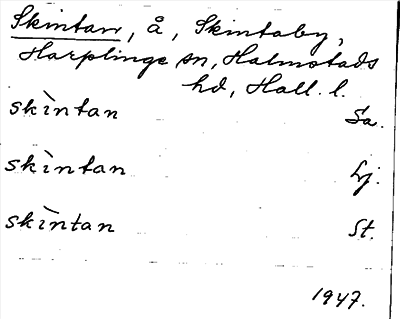 Skintan, å, Skintaby,
Harplinge sn, Halmstads
hd, Hall. l.
skìntan Sa.
skìntan Lj.
skìntan St.
1947.